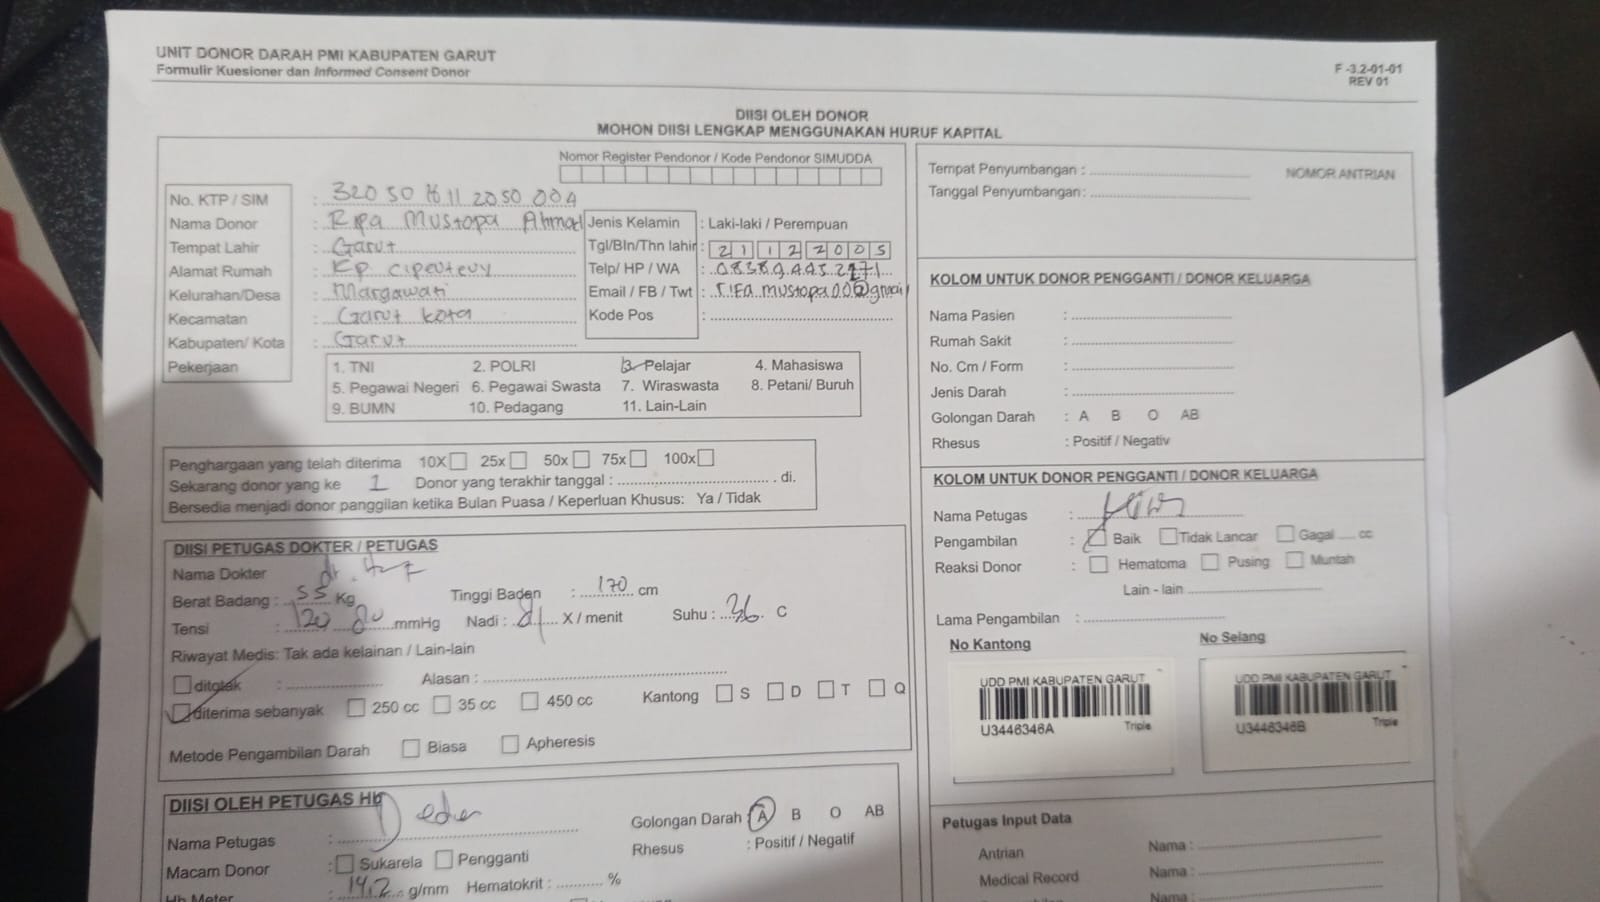 UNIT DONOR DARAH PMI KABUPATEN GARUT
Formulir Kuesioner dan Informed Consent Donor
F -3.2-01-01
REV 01
DIISI OLEH DONOR
MOHON DIISI LENGKAP MENGGUNAKAN HURUF KAPITAL
Nomor Register Pendonor / Kode Pendonor SIMUDDA
No. KTP / SIM : 32050 16 11 2050 004
Nama Donor : Ripa Mustopa Ahmad
Tempat Lahir : Garut
Alamat Rumah : Kp cipeuteuy
Kelurahan/Desa : Margawati
Kecamatan : Garut kota
Kabupaten/ Kota : Garut
Jenis Kelamin : Laki-laki / Perempuan
Tgl/Bln/Thn lahir : 21122005
Telp/ HP / WA
Email / FB / Twt : rifa.mustopa00@gmail
Kode Pos :
Pekerjaan
1. TNI 2. POLRI 3. Pelajar 4. Mahasiswa
5. Pegawai Negeri 6. Pegawai Swasta 7. Wiraswasta 8. Petani/ Buruh
9. BUMN 10. Pedagang 11. Lain-Lain
Penghargaan yang telah diterima 10X 25x 50x 75x 100x
Sekarang donor yang ke 1 Donor yang terakhir tanggal : di.
Bersedia menjadi donor panggilan ketika Bulan Puasa / Keperluan Khusus: Ya / Tidak
DIISI PETUGAS DOKTER / PETUGAS
Nama Dokter dr.
Berat Badang : 55 Kg Tinggi Baden : 170 cm
Tensi : 120 80 mmHg Nadi : X / menit Suhu : 36 C
Riwayat Medis: Tak ada kelainan / Lain-lain
ditolak : Alasan :
diterima sebanyak 250 cc 35 cc 450 cc Kantong S D T Q
Metode Pengambilan Darah Biasa Apheresis
DIISI OLEH PETUGAS Hb
Nama Petugas :
Golongan Darah : A B O AB
Rhesus : Positif / Negatif
Macam Donor : Sukarela Pengganti
Hb Meter : 14,2 g/mm Hematokrit : %
Tempat Penyumbangan :
NOMOR ANTRIAN
Tanggal Penyumbangan :
KOLOM UNTUK DONOR PENGGANTI / DONOR KELUARGA
Nama Pasien :
Rumah Sakit :
No. Cm / Form :
Jenis Darah :
Golongan Darah : A B O AB
Rhesus : Positif / Negativ
KOLOM UNTUK DONOR PENGGANTI / DONOR KELUARGA
Nama Petugas :
Pengambilan : Baik Tidak Lancar Gagal cc
Reaksi Donor : Hematoma Pusing Muntah
Lain - lain
Lama Pengambilan :
No Kantong
No Selang
UDD PMI KABUPATEN GARUT
U3446346A Triple
UDD PMI KABUPATEN GARUT
U3446346B Triple
Petugas Input Data
Antrian Nama :
Medical Record Nama :
Nama :